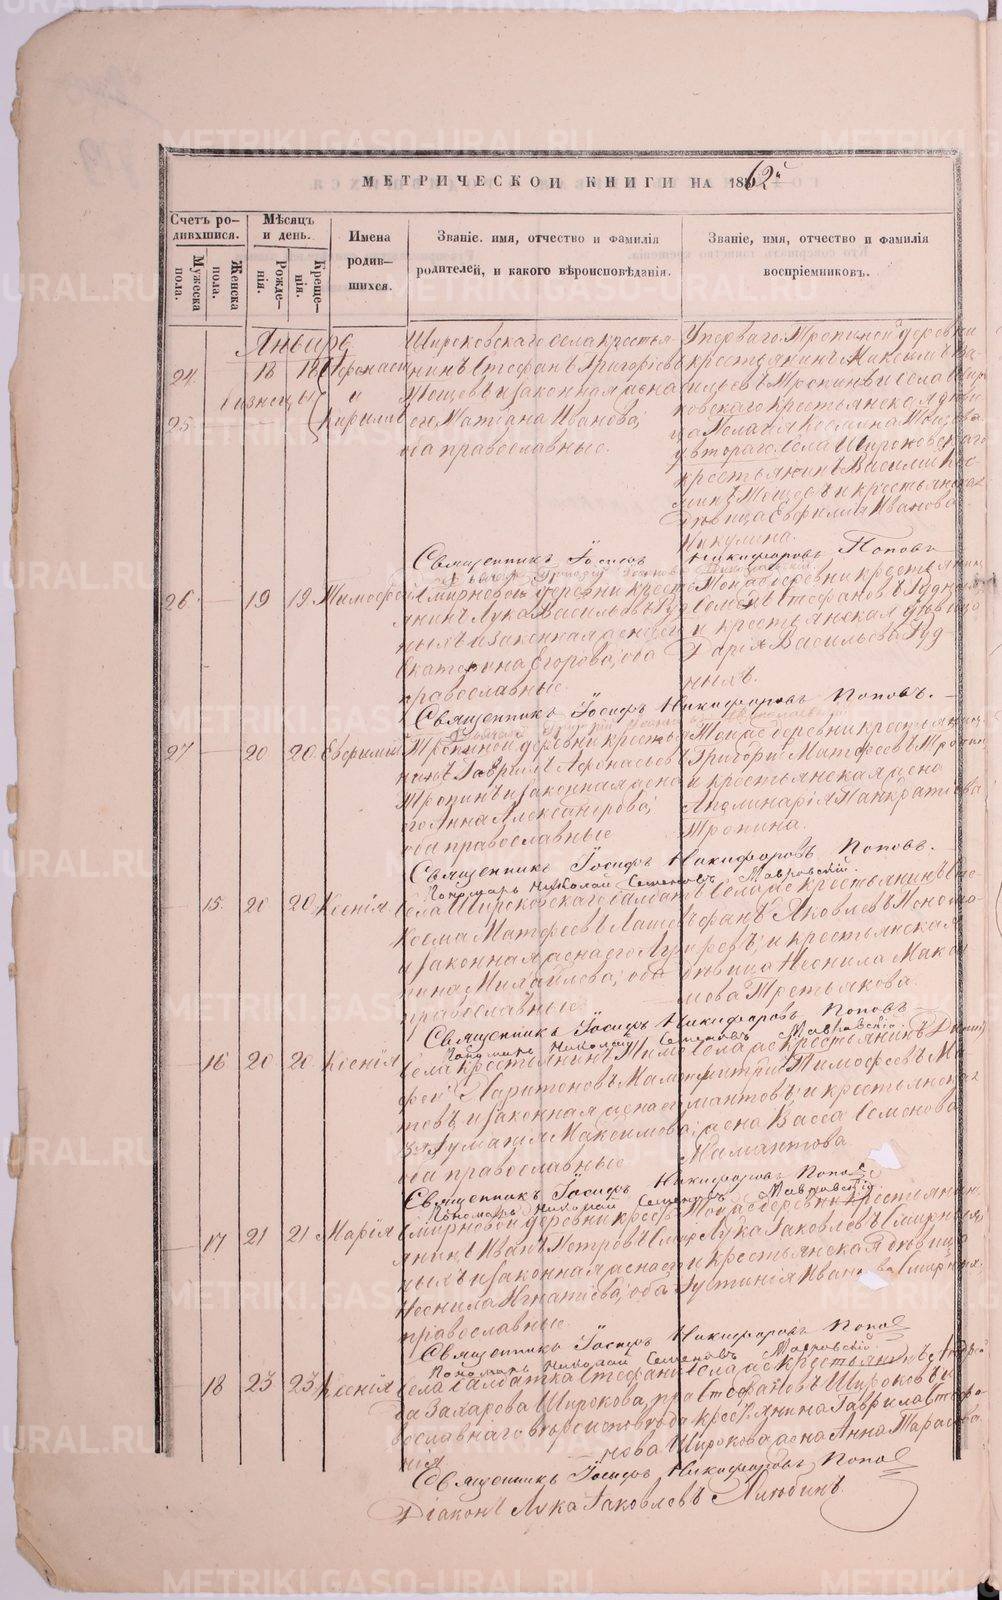 МЕТРИЧЕСКОЙ КНИГИ НА 1862й
Счетъ ро-
дившихся.
Мужеска
пола.
Женска
пола.
Мѣсяцъ
и день.
Рожде-
нія.
Креще-
нія.
Имена
родив-
шихся.
Званіе, имя, отчество и фамилія
родителей, и какого вѣроисповѣданія.
Званіе, имя, отчество и фамилія
воспріемниковъ.
Январь
24
25
18 18
близнецы
и
Кириллъ
Широковскаго села крестья
нинъ Стефанъ Григорьевъ
и законная жена
его Татіана Иванова;
оба православные.
У перваго: Тропиной деревни
крестьянинъ Максимъ Ва-
сильевъ Тропинъ и села Широ
ковскаго крестьянская дѣви
ца Пелагія
у втораго: села Широковскаго
крестьянинъ Василій
и крестьянская
дѣвица Евфимія Иванова
Никулина.
Священникъ Іосифъ Никифоровъ Поповъ
26 19 19 Тимофей
Смирновой деревни кресть
янинъ Лука Васильевъ Руд
ныхъ и законная жена его
Екатерина Егорова; оба
православные.
Той же деревни крестьянинъ
Семенъ Стефановъ Рудныхъ
и крестьянская дѣвица
Дарія Васильева Руд-
ныхъ.
Священникъ Іосифъ Никифоровъ Поповъ.
27 20 20 Евфимій
Тропиной деревни кресть
янинъ Гавріилъ Афонасьевъ
Тропинъ и законная жена
его Анна Александрова;
оба православные
Той же деревни крестьянинъ
Григорій Матфеевъ Тропин
и крестьянская жена
Аполинарія Панкратіева
Тропина.
Священникъ Іосифъ Никифоровъ Поповъ.
Пономарь Николай Семеновъ Мавровскій.
15 20 20 Ксенія
Села Широковскаго солдатъ
Косма Матфеевъ
и законная жена его Лу
Михайлова; оба
православные
Села же крестьянинъ Сте
фанъ Яковлевъ Понома
ревъ; и крестьянская
дѣвица Неонила Макси
мова Третьякова.
Священникъ Іосифъ Никифоровъ Поповъ
Пономарь Николай Семеновъ Мавровскій.
16 20 20 Ксенія
Села крестьянинъ Тимо
фей Харитоновъ Маман
товъ и законная жена его
Максимова;
оба православные
Села же крестьянинъ Ди
митрій Тимофеевъ Ма
мантовъ; и крестьянская
жена Васса Семенова
Мамантова.
Священникъ Іосифъ Никифоровъ Поповъ
Пономарь Николай Семеновъ Мавровскій.
17 21 21 Марія
Смирновой деревни кресть
янинъ Иванъ Петровъ Смир
ныхъ и законная жена его
Неонила Игнатіева; оба
православные.
Той же деревни крестьянин
Лука Іаковлевъ Смирных
и крестьянская дѣвица
Іустинія Иванова Смирных
Священникъ Іосифъ Никифоровъ Поповъ
Пономарь Николай Семеновъ Мавровскій
18 23 23 Ксенія
Села солдатка Стефани
да Захарова Широкова, пра
вославнаго вѣроисповѣда
нія
Села же крестьянинъ Андрей
Стефановъ Широковъ и
крестьянина Гавріила Стефа
нова Широкова, жена Анна Тарасова
Священникъ Іосифъ Никифоровъ Поповъ
Діаконъ Лука Іаковлевъ